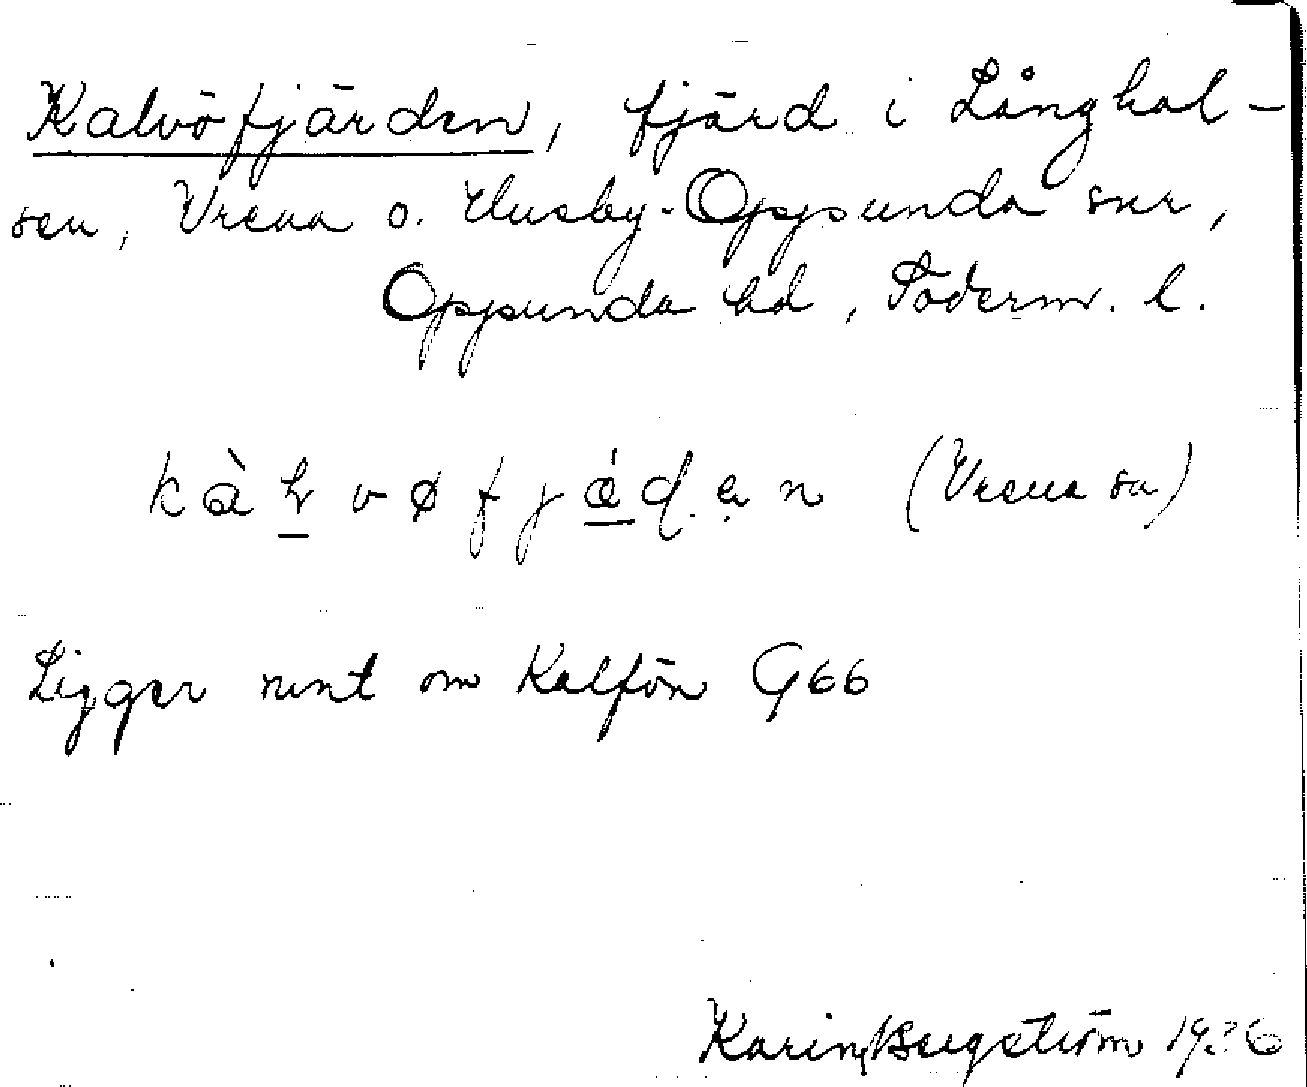 Kalvöfjärden, fjärd i Långhal-
sen, Vrena o. Husby-Oppunda snr,
Oppunda hd, Söderm. l.
(Vrena sn)
Ligger runt om Kalfön G66
Karin Bergström